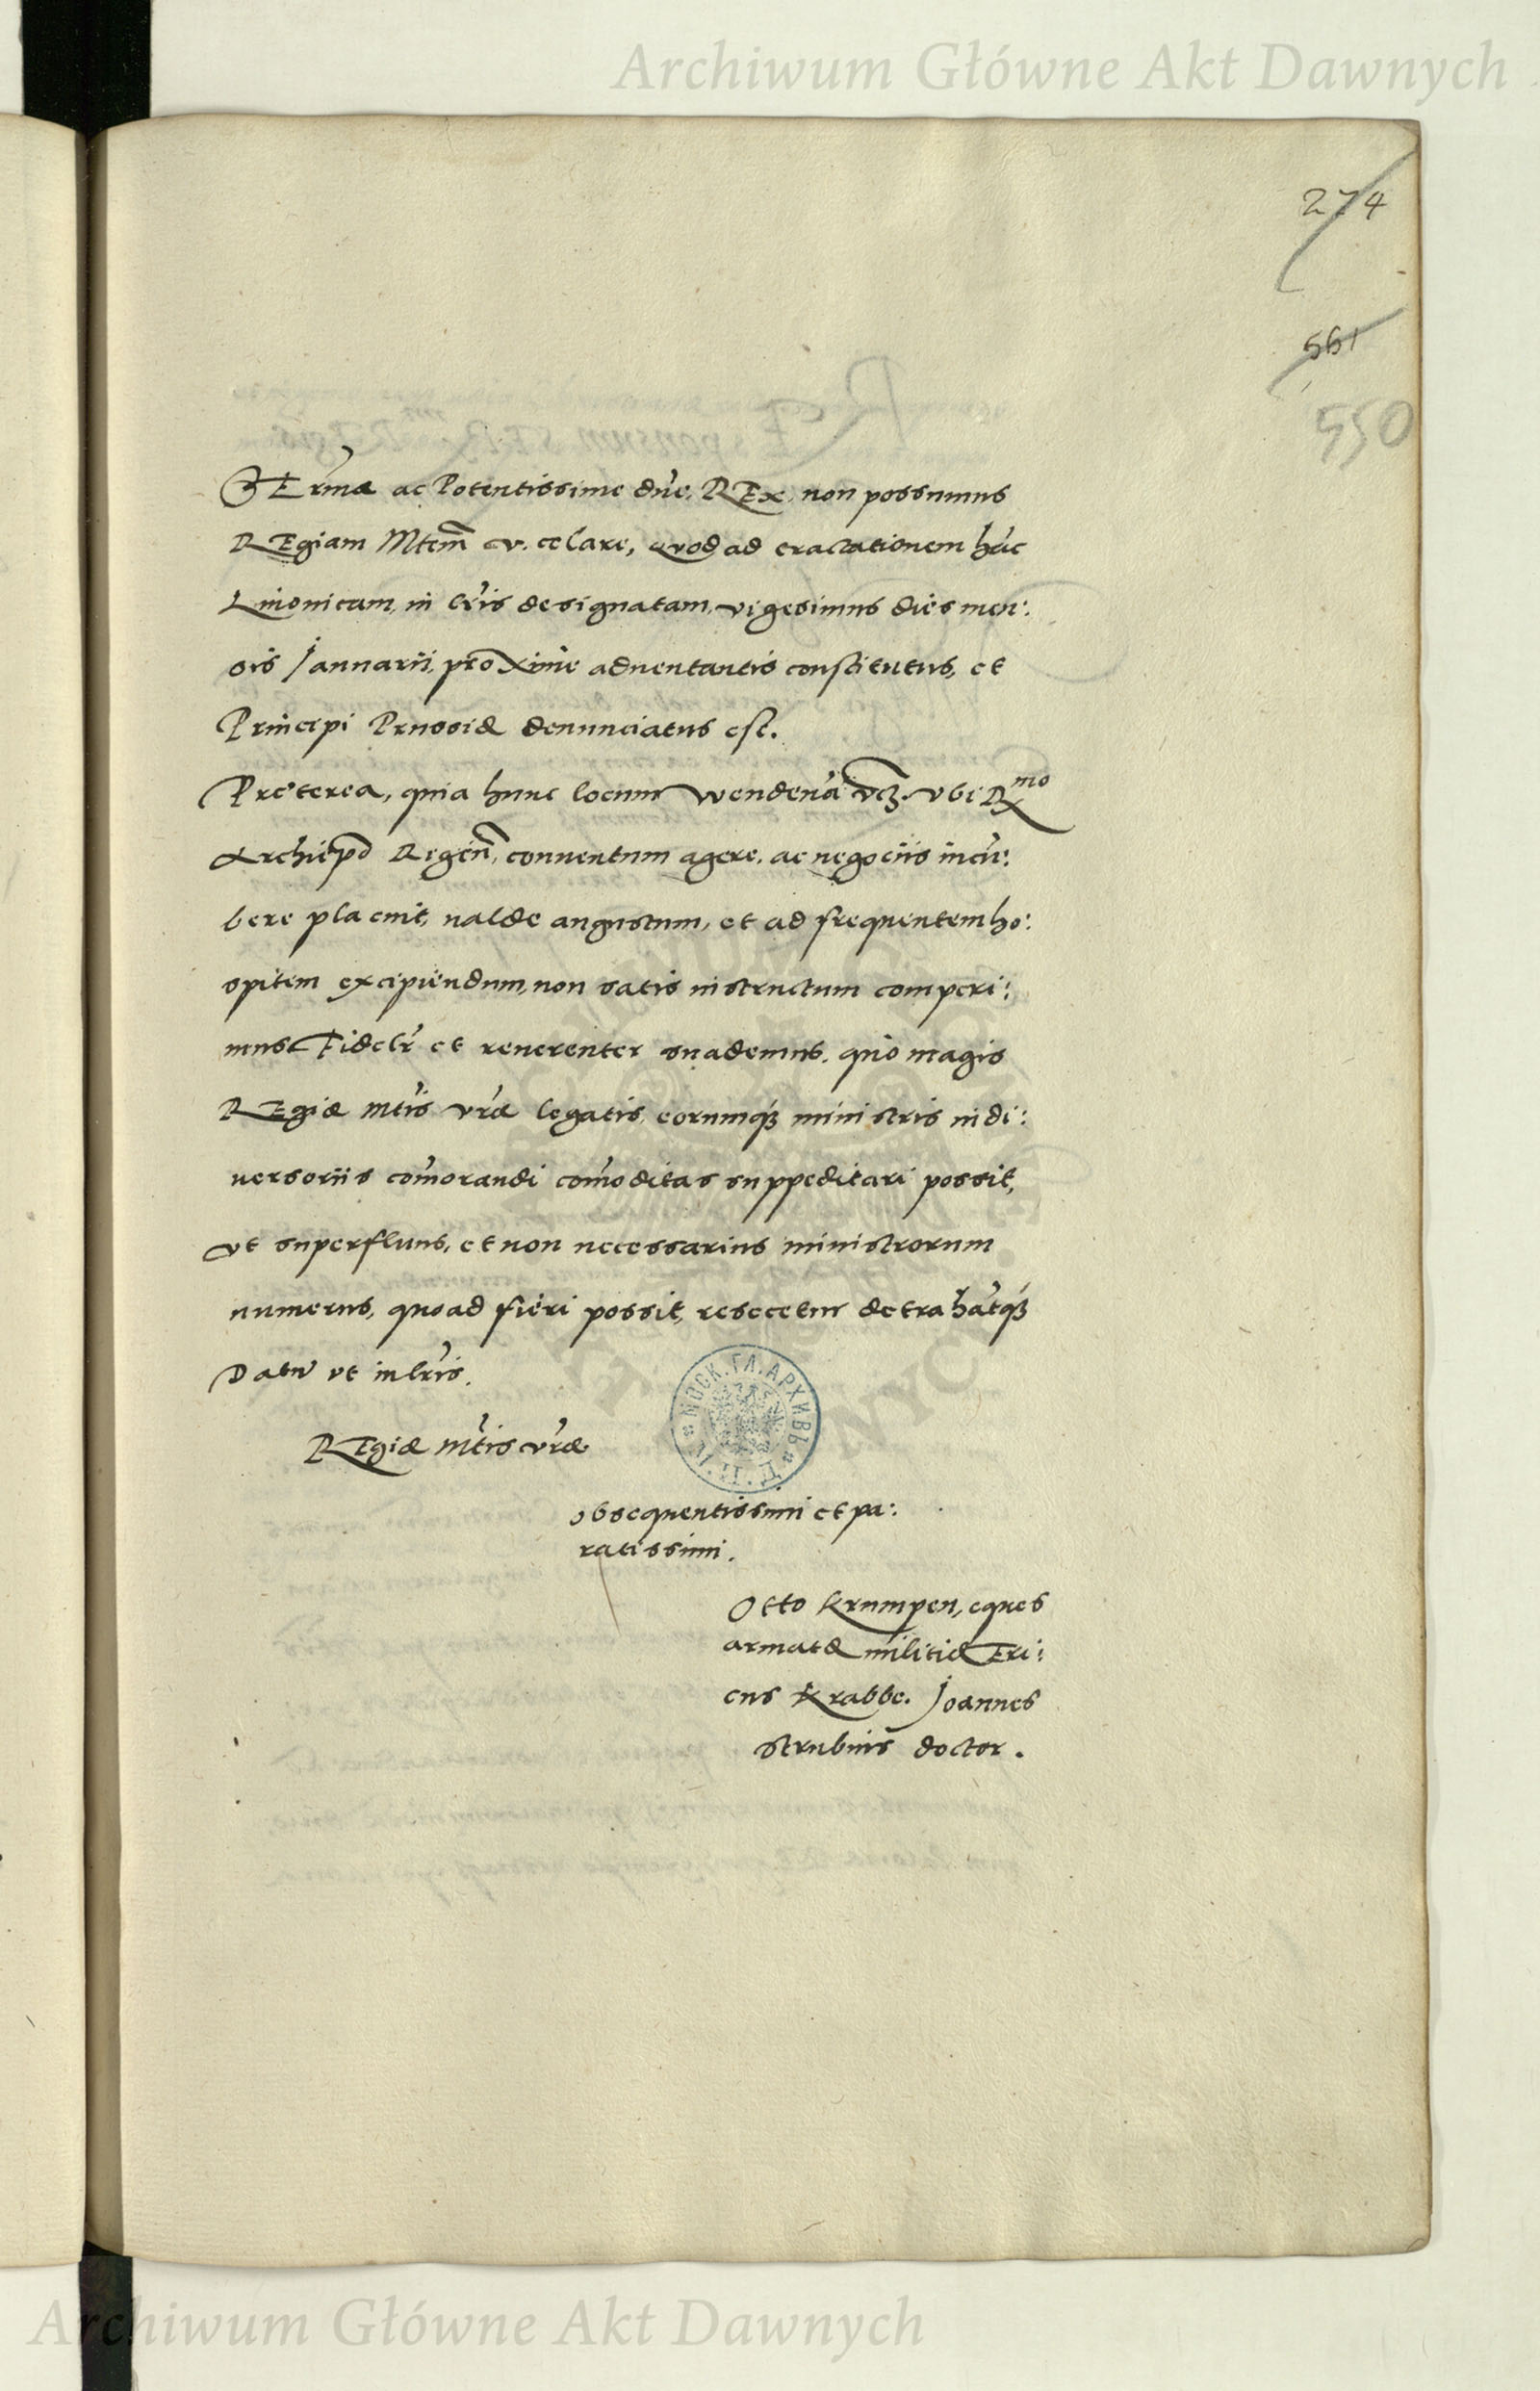 Archiwum Główne Akt Dawnych
274
561
550
SErmæ ac Potentissime dne. REx, non possumus
REgiam Mtem v. celare, quod ad tractationem hãc
Liuonicam, in lris designatam, vigesimus dies men:
sis Januarii, proxime aduentantis constitutus, et
Principi Prussiæ denunciatus est.
Preterea, quia hunc locum Wendenã vcz. vbi Rmo
Archiepo Rigen, conuentum agere, ac negociis incũ:
bere placuit, ualde angustum, et ad frequentem ho:
spitem excipiendum, non satis instructum comperi:
mus Fidelr et reuerenter suademus, quo magis
REgiæ Mtis vræ legatis, eorumqȝ ministris in di:
uersoriis comorandi comoditas suppeditari possit,
vt superfluus, et non necessarius ministrorum
numerus, quoad fieri possit, resecetur detrahatqȝ
Datu vt in lris.
REgiæ Mtis vræ
obsequentissimi et pa:
ratissimi.
Otto Krumpen, eques
armatæ militiæ Eri:
cus Krabbe. Joannes
Strubius doctor.
МОСК. ГЛ. АРХИВЪ
Archiwum Główne Akt Dawnych